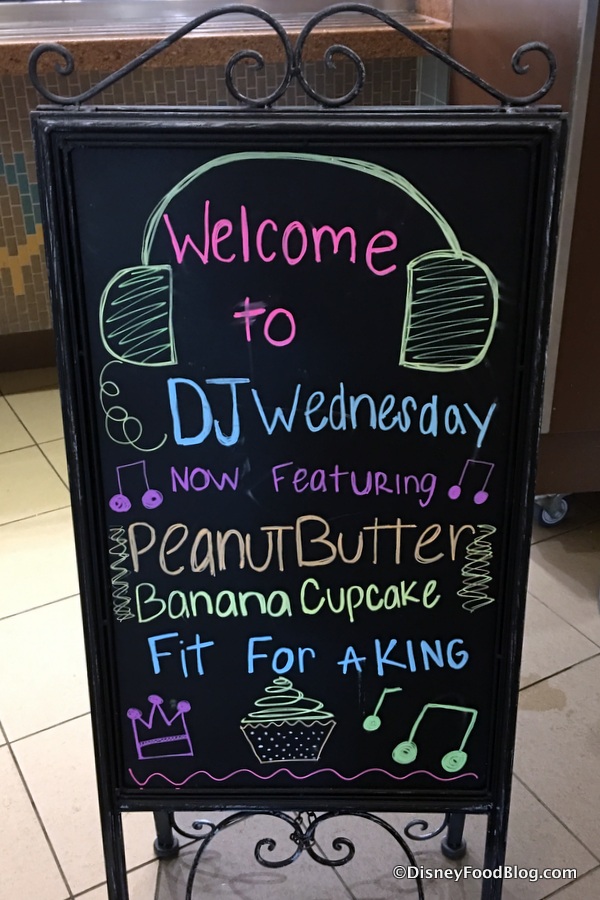 Welcome
to
DJ Wednesday
Now Featuring
Peanut Butter
Banana Cupcake
Fit For A KING
©DisneyFoodBlog.com